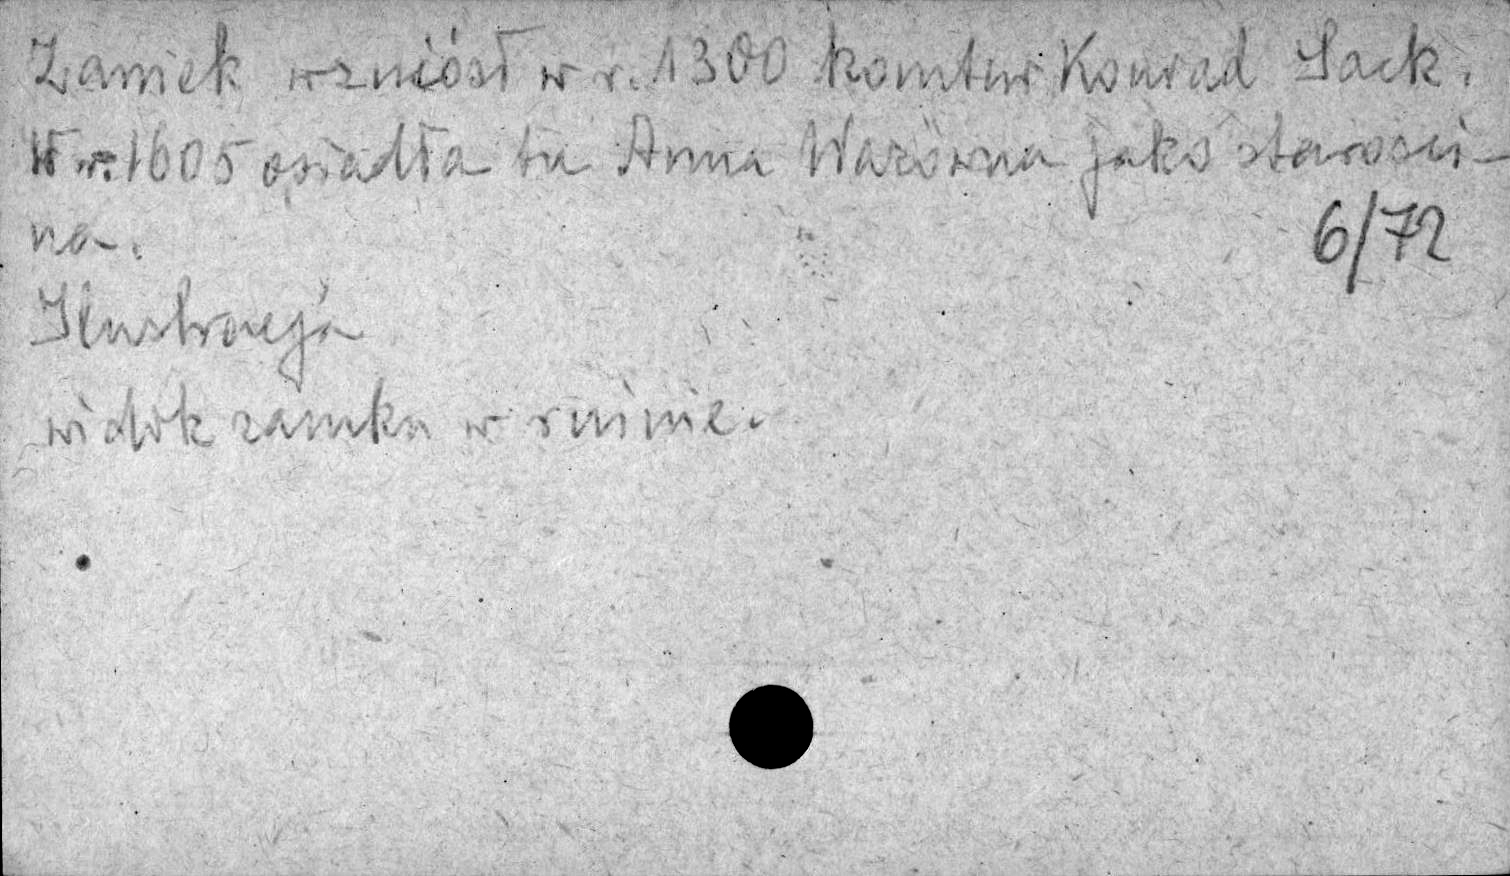 Zamek wzniósł w r. 1300 komtur Konrad Sack.
W r. 1605 osiadła tu Anna Wazówna jako starości-
na.
6/72
Ilustracja
widok zamku w ruinie.